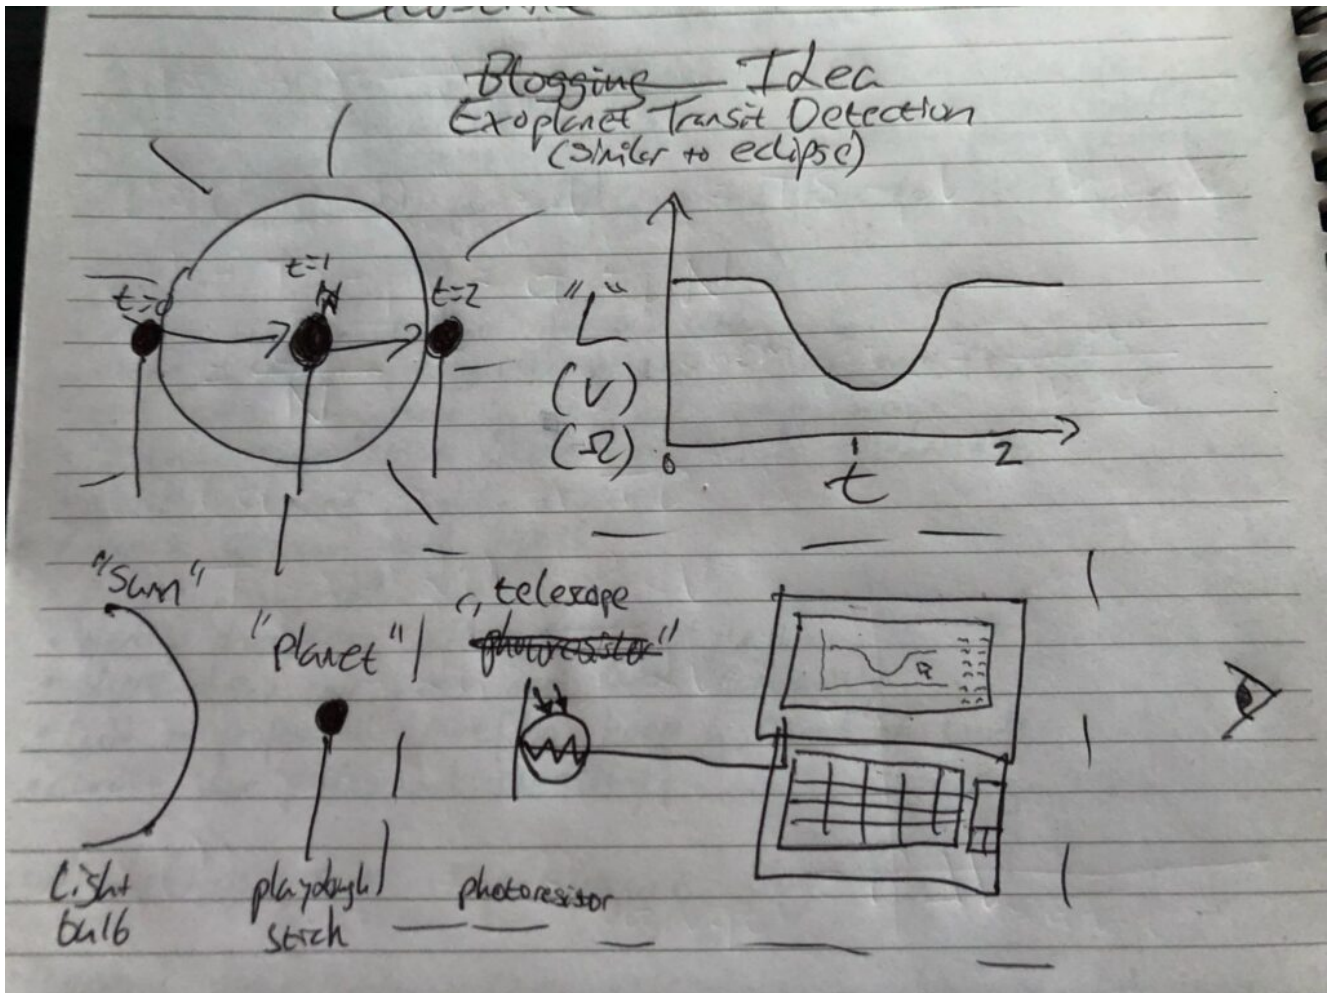 Blogging Idea
Exoplanet Transit Detection
(similar to eclipse)
t=0
t=1
t=2
"L"
(V)
(Ω)
0
1
2
t
"Sun"
"planet"
"telescope
photoresistor"
Light
bulb
playdough
stick
photoresistor